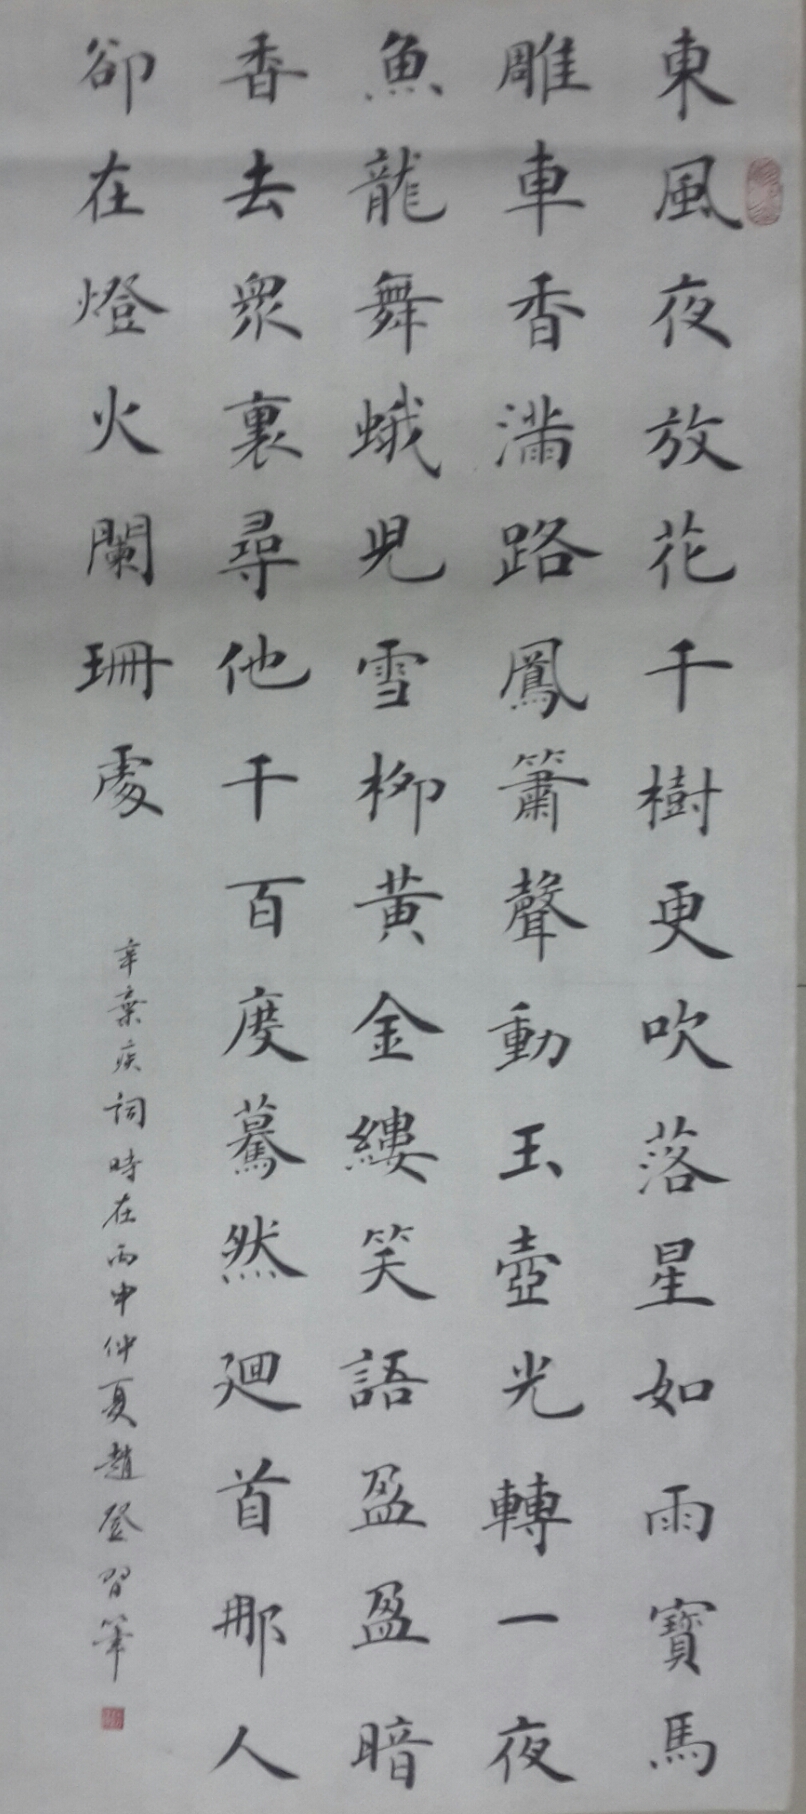 東風夜放花千樹更吹落星如雨寶馬
雕車香滿路鳳簫聲動玉壺光轉一夜
魚龍舞蛾兒雪柳黃金縷笑語盈盈暗
香去衆裏尋他千百度驀然廻首那人
卻在燈火闌珊處
辛棄疾詞時在丙申仲夏趙登習筆